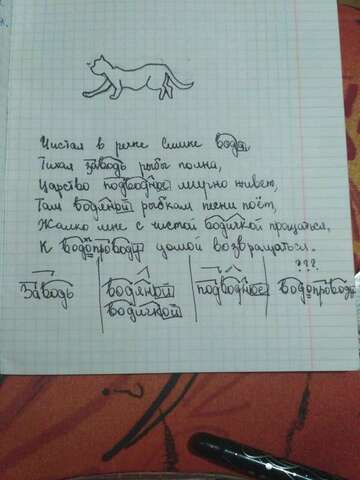 Чистая в речке Синие вода,
Тихая заводь рыбы полна,
Царство подводное мирно живёт,
Там водяной рыбкам песни поёт,
Жалко мне с чистой водичкой прощаться,
К водопроводу домой возвращаться.
???
Заводь водяной подводное водопроводу
водичкой